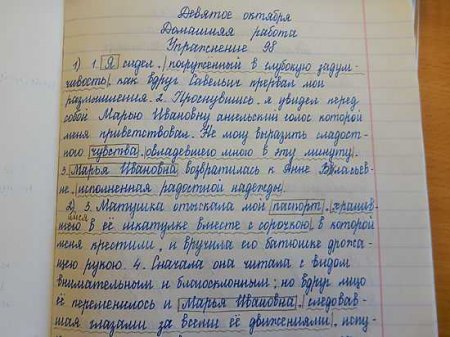 Девятое октября
Домашняя работа
Упражнение 98
1) 1. Я сидел, погруженный в глубокую задум-
чивость, как вдруг Савельич прервал мои
размышления. 2. Проснувшись, я увидел перед
собой Марью Ивановну ангельский голос которой
меня приветствовал. Не могу выразить сладост-
ного чувства, овладевшего мною в эту минуту.
3. Марья Ивановна возвратилась к Анне Власьев-
не, исполненная радостной надежды.
2) 3. Матушка отыскала мой паспорт, хранив-
шегося в её шкатулке вместе с сорочкою, в которой
меня крестили, и вручила его батюшке дрожа-
щею рукою. 4. Сначала она читала с видом
внимательным и благосклонным; но вдруг лицо
её переменилось и Марья Ивановна, следовав-
шая глазами за всеми её движениями, испу-